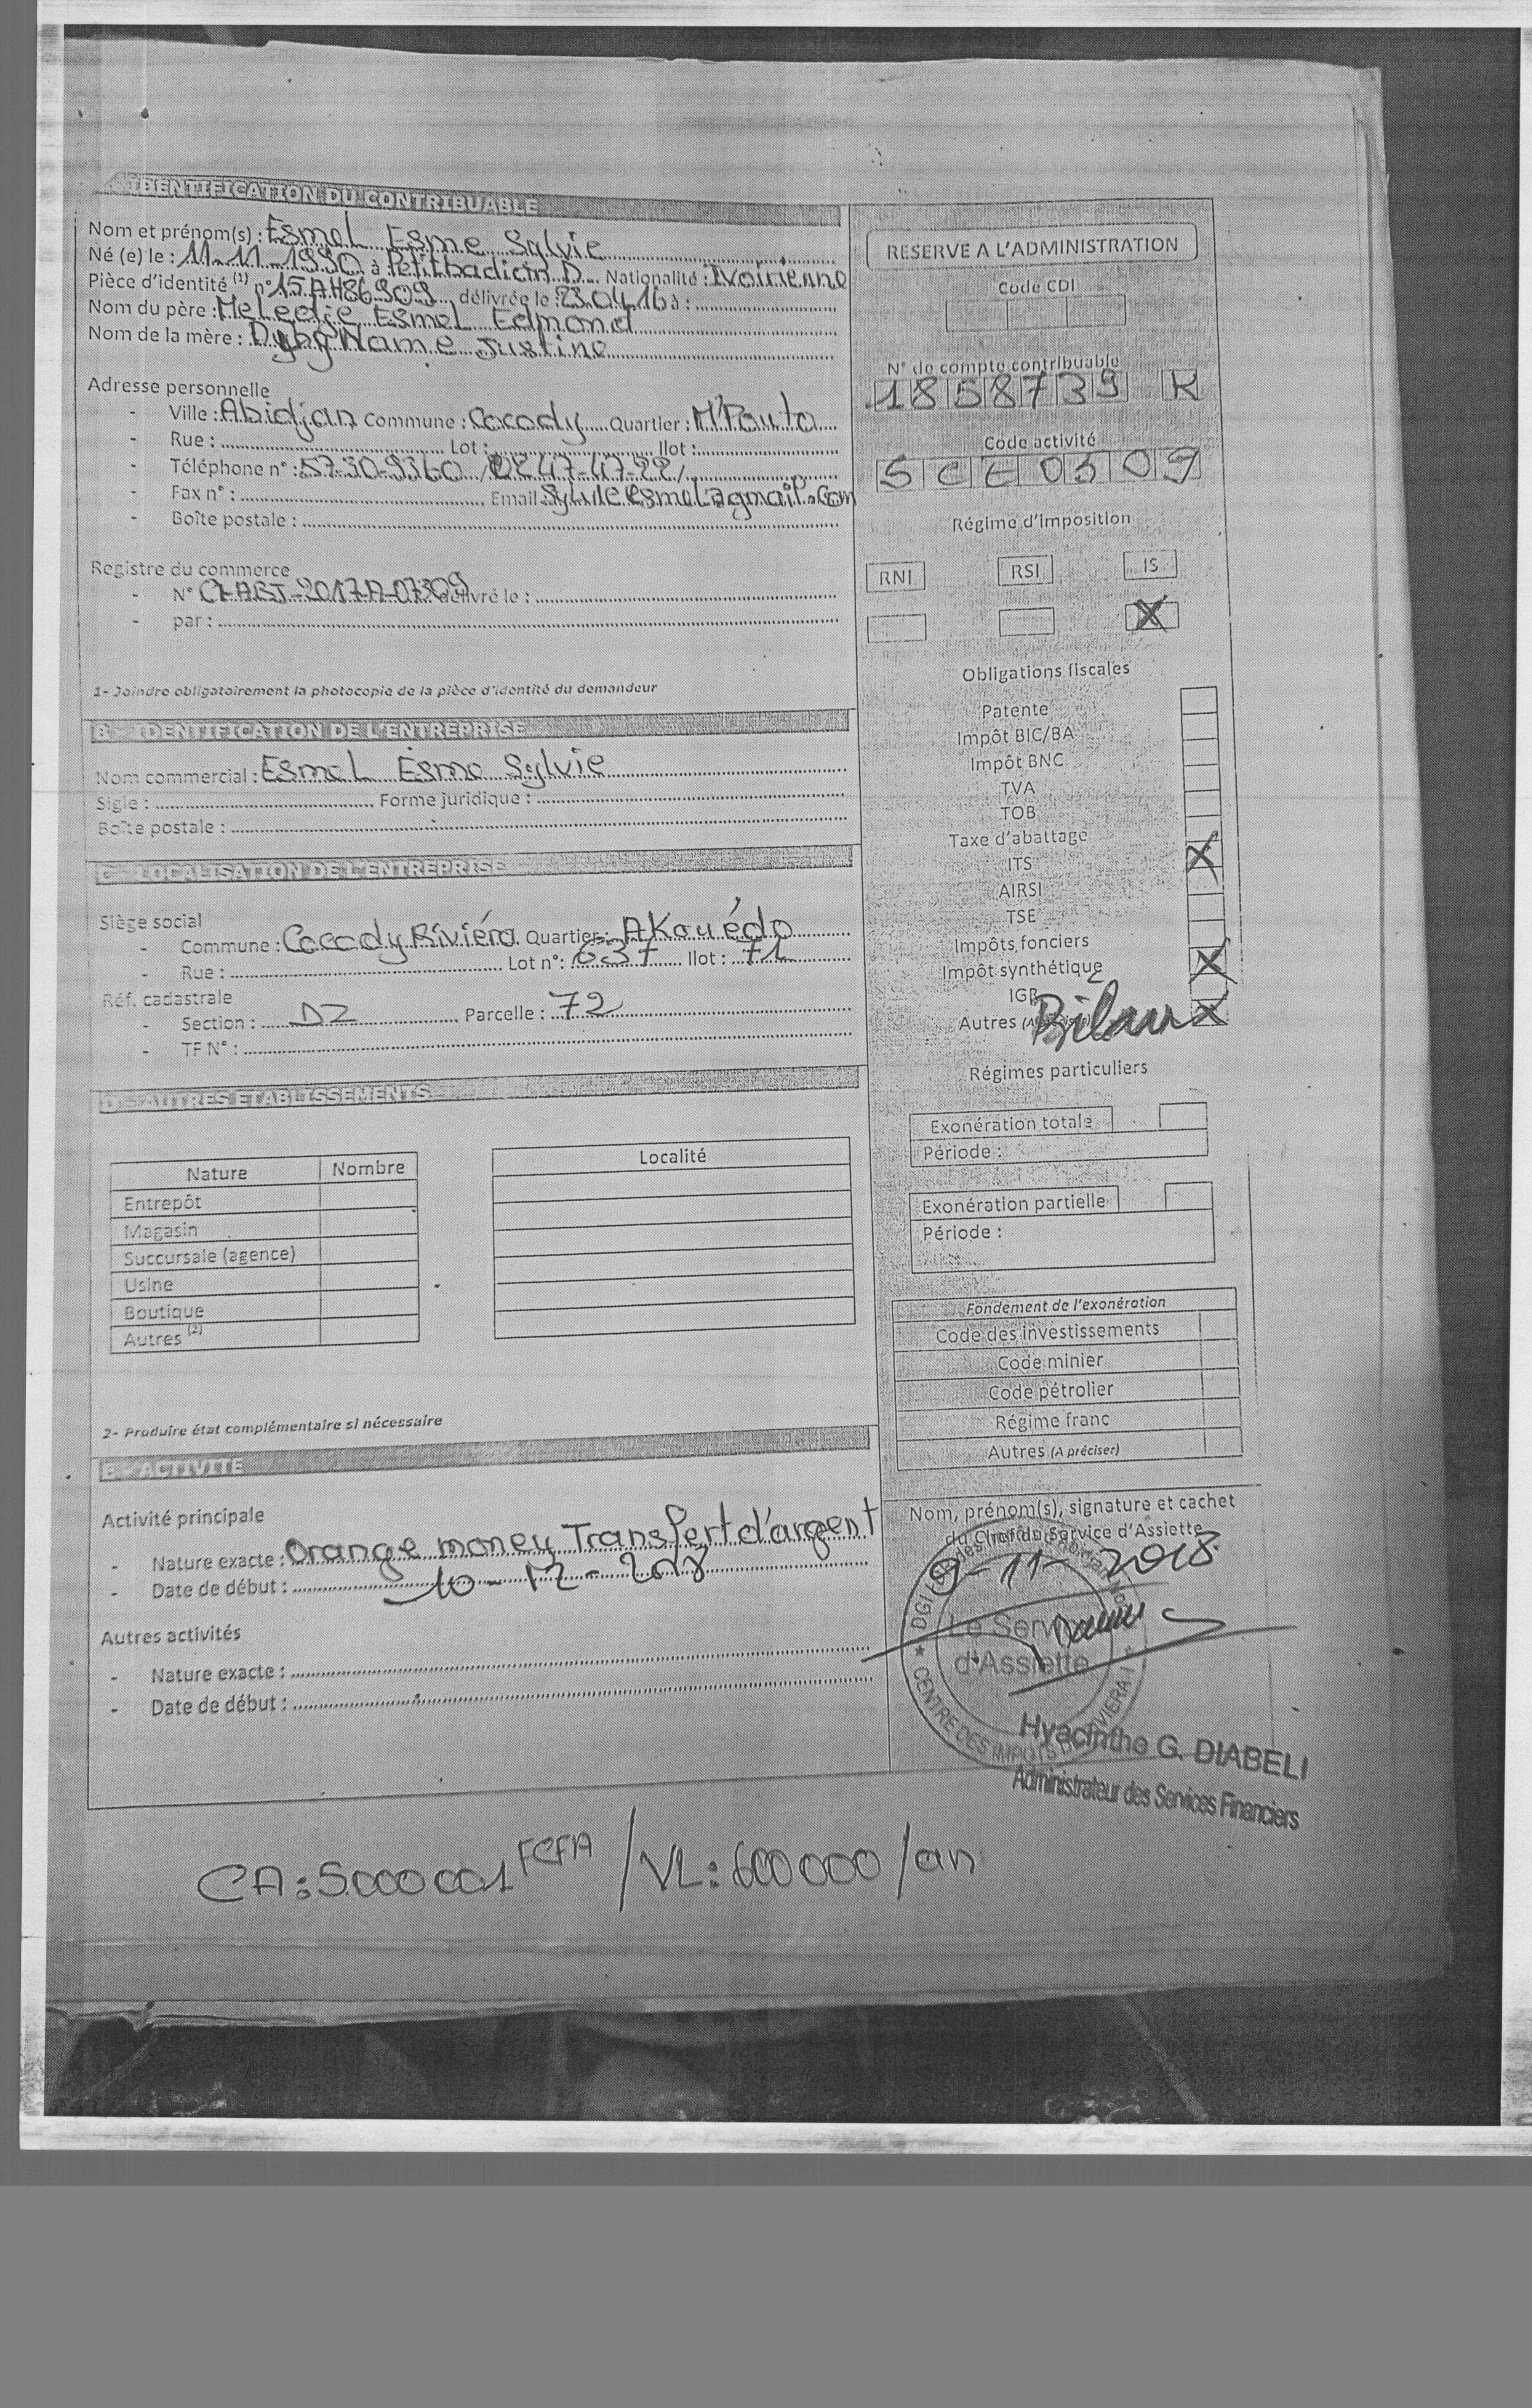 IDENTIFICATION DU CONTRIBUABLE
Nom et prénom(s) : Esmel Esme Sylvie
Né (e) le : 11-11-1990 à Petitbadien D Nationalité : Ivoirienne
Pièce d'identité (1) n° 15AH86909 délivrée le : 23.04.16 à :
Nom du père : Meledje Esmel Edmond
Nom de la mère : Name Justine
Adresse personnelle
- Ville : Abidjan Commune : Cocody Quartier : M'Pouto
- Rue : Lot : Ilot :
- Téléphone n° : 57-30-9360 / 47-47-22/
- Fax n° : Email sylvieesmel@gmail.com
- Boîte postale :
Registre du commerce
- N° CI-ABJ-2017-A-07309 délivré le :
- par :
1- Joindre obligatoirement la photocopie de la pièce d'identité du demandeur
B - IDENTIFICATION DE L'ENTREPRISE
Nom commercial : Esmel Esme Sylvie
Sigle : Forme juridique :
Boîte postale :
C - LOCALISATION DE L'ENTREPRISE
Siège social
- Commune : Cocody Riviéra Quartier : AKouédo
- Rue : Lot n° : 637 Ilot : 71
Réf. cadastrale
- Section : DZ Parcelle : 72
- TF N° :
D - AUTRES ETABLISSEMENTS
Nature Nombre Localité
Entrepôt
Magasin
Succursale (agence)
Usine
Boutique
Autres (2)
2- Produire état complémentaire si nécessaire
E - ACTIVITE
Activité principale
- Nature exacte : Orange money Transfert d'argent
- Date de début : 10-12-2018
Autres activités
- Nature exacte :
- Date de début :
RESERVE A L'ADMINISTRATION
Code CDI
N° de compte contribuable
1858739 K
Code activité
SCE0309
Régime d'imposition
RNI RSI IS
X
Obligations fiscales
Patente
Impôt BIC/BA
Impôt BNC
TVA
TOB
Taxe d'abattage
ITS X
AIRSI
TSE
Impôts fonciers
Impôt synthétique X
IGR
Autres Bilan X
Régimes particuliers
Exonération totale
Période :
Exonération partielle
Période :
Fondement de l'exonération
Code des investissements
Code minier
Code pétrolier
Régime franc
Autres (A préciser)
Nom, prénom(s), signature et cachet
du Chef du Service d'Assiette
9-11-2018
Le Service
d'Assiette
CENTRE DES IMPOTS RIVIERA I
Hyacinthe G. DIABELI
Administrateur des Services Financiers
CA : 5000001 FCFA / VL : 600000 / an